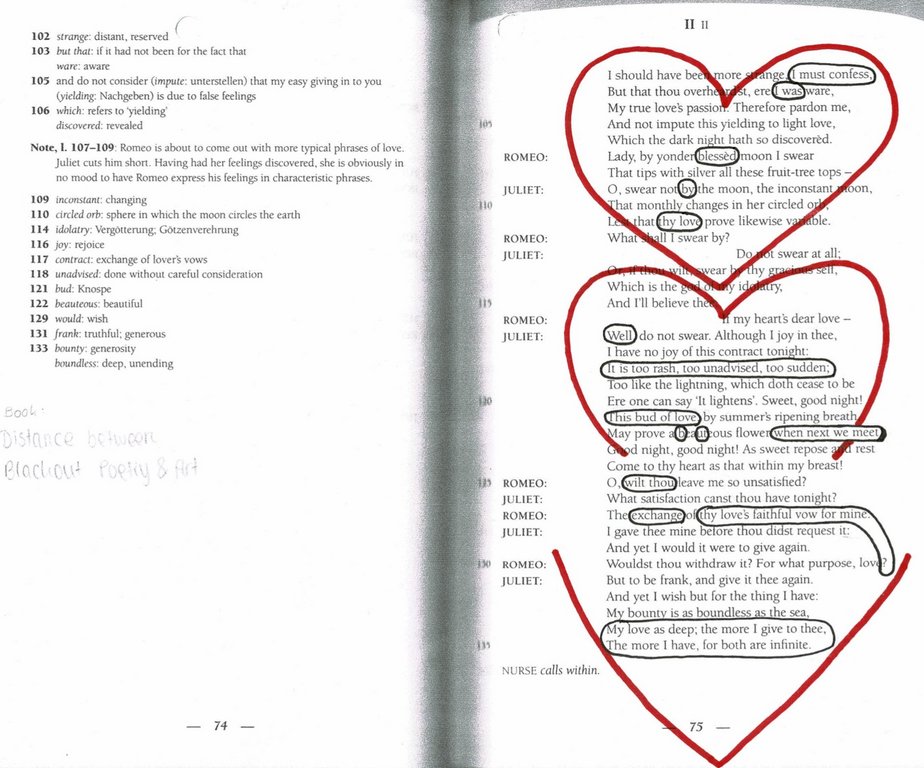 102 strange: distant, reserved
103 but that: if it had not been for the fact that
ware: aware
105 and do not consider (impute: unterstellen) that my easy giving in to you
(yielding: Nachgeben) is due to false feelings
106 which: refers to 'yielding'
discovered: revealed
Note, l. 107–109: Romeo is about to come out with more typical phrases of love.
Juliet cuts him short. Having had her feelings discovered, she is obviously in
no mood to have Romeo express his feelings in characteristic phrases.
109 inconstant: changing
110 circled orb: sphere in which the moon circles the earth
114 idolatry: Vergötterung; Götzenverehrung
116 joy: rejoice
117 contract: exchange of lover's vows
118 unadvised: done without careful consideration
121 bud: Knospe
122 beauteous: beautiful
129 would: wish
131 frank: truthful; generous
133 bounty: generosity
boundless: deep, unending
Book:
Distance between
Blackout Poetry & Art
— 74 —
II II
I should have been more strange, I must confess,
But that thou overheardst, ere I was ware,
My true love's passion. Therefore pardon me,
105 And not impute this yielding to light love,
Which the dark night hath so discoverèd.
ROMEO: Lady, by yonder blessèd moon I swear
That tips with silver all these fruit-tree tops –
JULIET: O, swear not by the moon, the inconstant moon,
110 That monthly changes in her circled orb,
Lest that thy love prove likewise variable.
ROMEO: What shall I swear by?
JULIET: Do not swear at all;
Or, if thou wilt, swear by thy gracious self,
Which is the god of my idolatry,
115 And I'll believe thee.
ROMEO: If my heart's dear love –
JULIET: Well, do not swear. Although I joy in thee,
I have no joy of this contract tonight:
It is too rash, too unadvised, too sudden;
Too like the lightning, which doth cease to be
120 Ere one can say 'It lightens'. Sweet, good night!
This bud of love, by summer's ripening breath,
May prove a beauteous flower when next we meet.
Good night, good night! As sweet repose and rest
Come to thy heart as that within my breast!
125 ROMEO: O, wilt thou leave me so unsatisfied?
JULIET: What satisfaction canst thou have tonight?
ROMEO: The exchange of thy love's faithful vow for mine.
JULIET: I gave thee mine before thou didst request it:
And yet I would it were to give again.
130 ROMEO: Wouldst thou withdraw it? For what purpose, love?
JULIET: But to be frank, and give it thee again.
And yet I wish but for the thing I have:
My bounty is as boundless as the sea,
My love as deep; the more I give to thee,
135 The more I have, for both are infinite.
NURSE calls within.
— 75 —